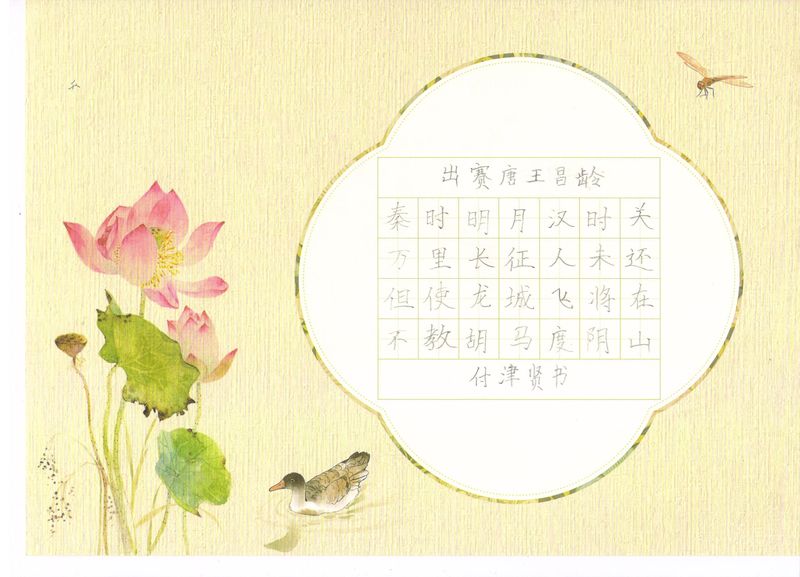 出赛唐王昌龄
秦时明月汉时关
万里长征人未还
但使龙城飞将在
不教胡马度阴山
付津贤书